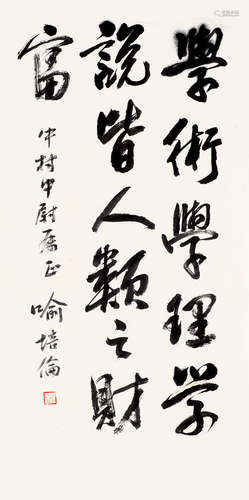 學術學理学
說皆人類之財
富
中村中尉属正
喻培倫